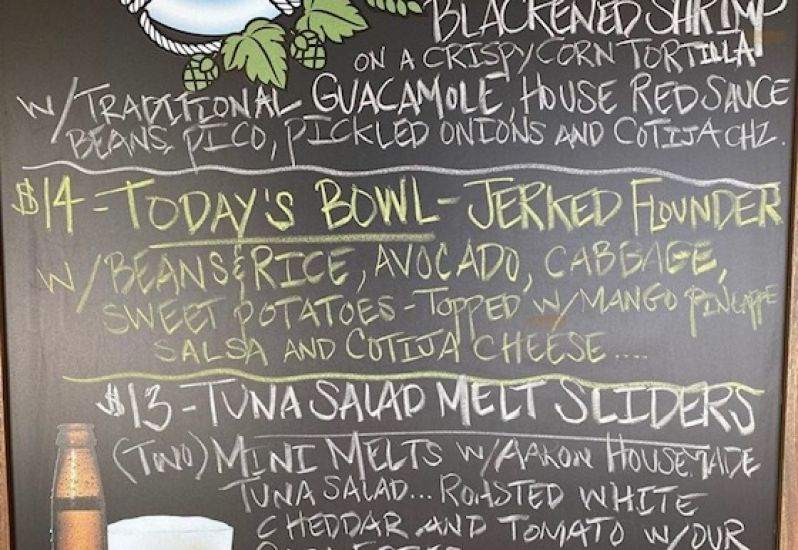 BLACKENED SHRIMP
ON A CRISPY CORN TORTILLA
W/ TRADITIONAL GUACAMOLE, HOUSE RED SAUCE
BEANS, PICO, PICKLED ONIONS AND COTIJA CHZ.
$14 - TODAY'S BOWL - JERKED FLOUNDER
W/ BEANS & RICE, AVOCADO, CABBAGE,
SWEET POTATOES - TOPPED W/ MANGO PINEAPPE
SALSA AND COTIJA CHEESE ....
$13 - TUNA SALAD MELT SLIDERS
(TWO) MINI MELTS W/ AARON HOUSEMADE
TUNA SALAD... ROASTED WHITE
CHEDDAR AND TOMATO W/ OUR